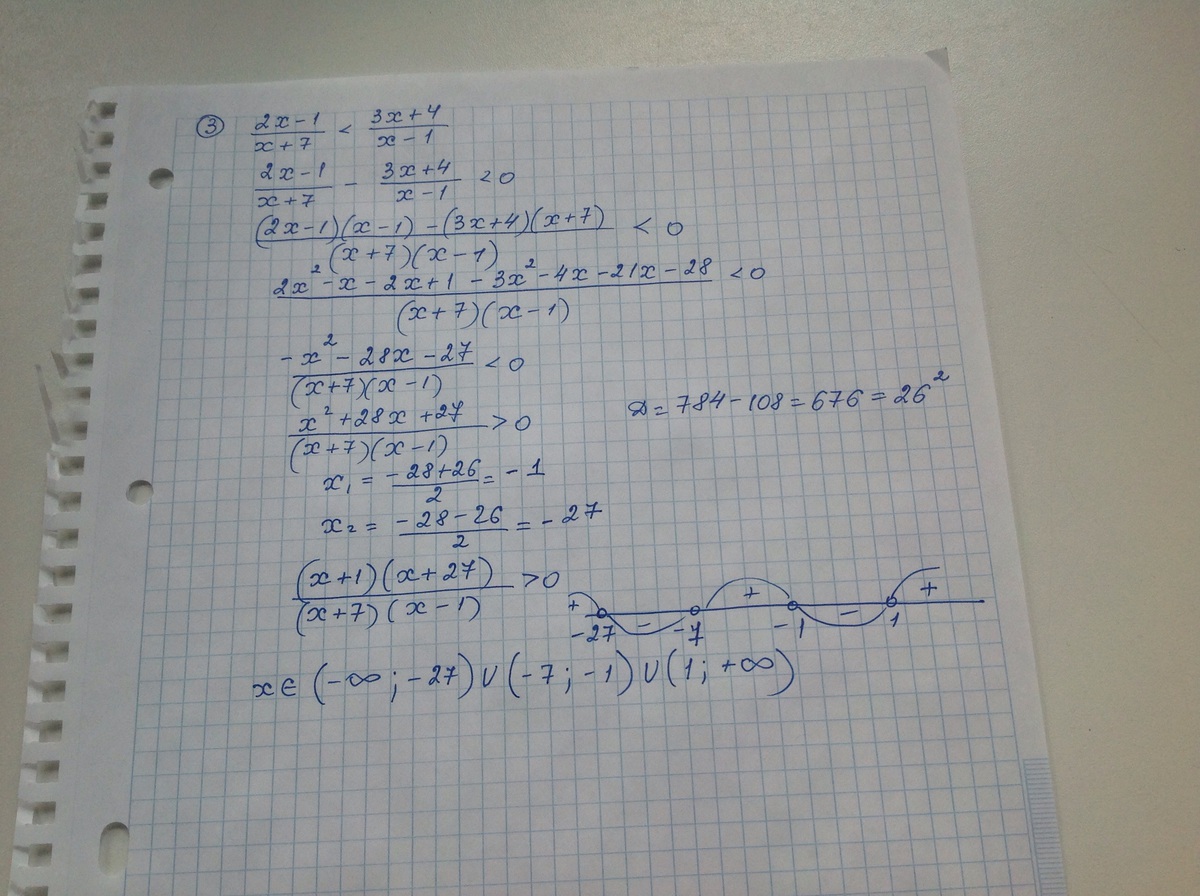 ③ (2x-1)/(x+7) < (3x+4)/(x-1)
(2x-1)/(x+7) - (3x+4)/(x-1) < 0
((2x-1)(x-1) - (3x+4)(x+7))/((x+7)(x-1)) < 0
(2x²-x-2x+1-3x²-4x-21x-28)/((x+7)(x-1)) < 0
(-x²-28x-27)/((x+7)(x-1)) < 0
(x²+28x+27)/((x+7)(x-1)) > 0
D = 784-108 = 676 = 26²
x₁ = (-28+26)/2 = -1
x₂ = (-28-26)/2 = -27
((x+1)(x+27))/((x+7)(x-1)) > 0
+ - + - +
-27 -7 -1 1
x∈(-∞;-27)∪(-7;-1)∪(1;+∞)